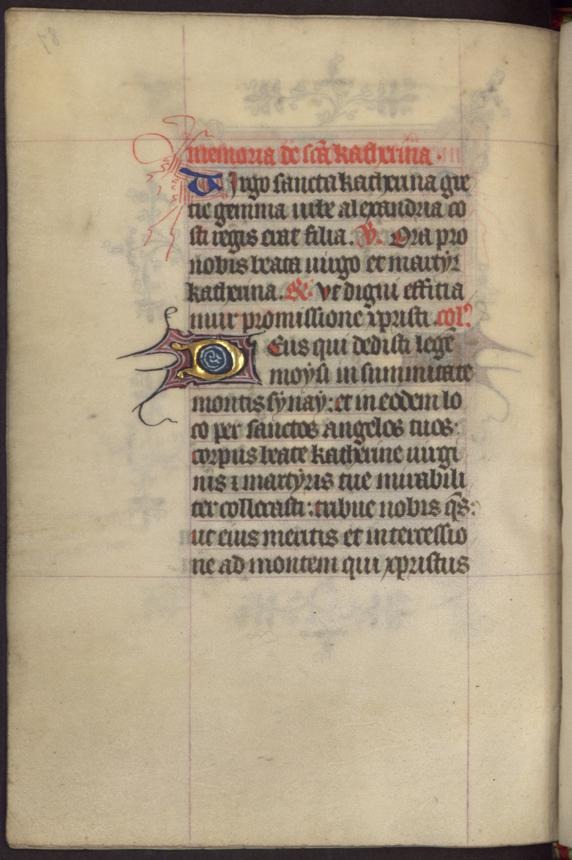 memoria de scā katherina.
Uirgo sancta katherina gre
cie gemma urbe alexandria co
sti regis erat filia. V. Ora pro
nobis beata uirgo et martyr
katherina. R. Vt digni efficia
mur promissione xpristi. col'.
Deus qui dedisti legē
moysi in summitate
montis synay: et in eodem lo
co per sanctos angelos tuos:
corpus beate katherine uirgi
nis ⁊ martyris tue mirabili
ter collocasti: tribue nobis qs:
ut eius meritis et intercessio
ne ad montem qui xpristus